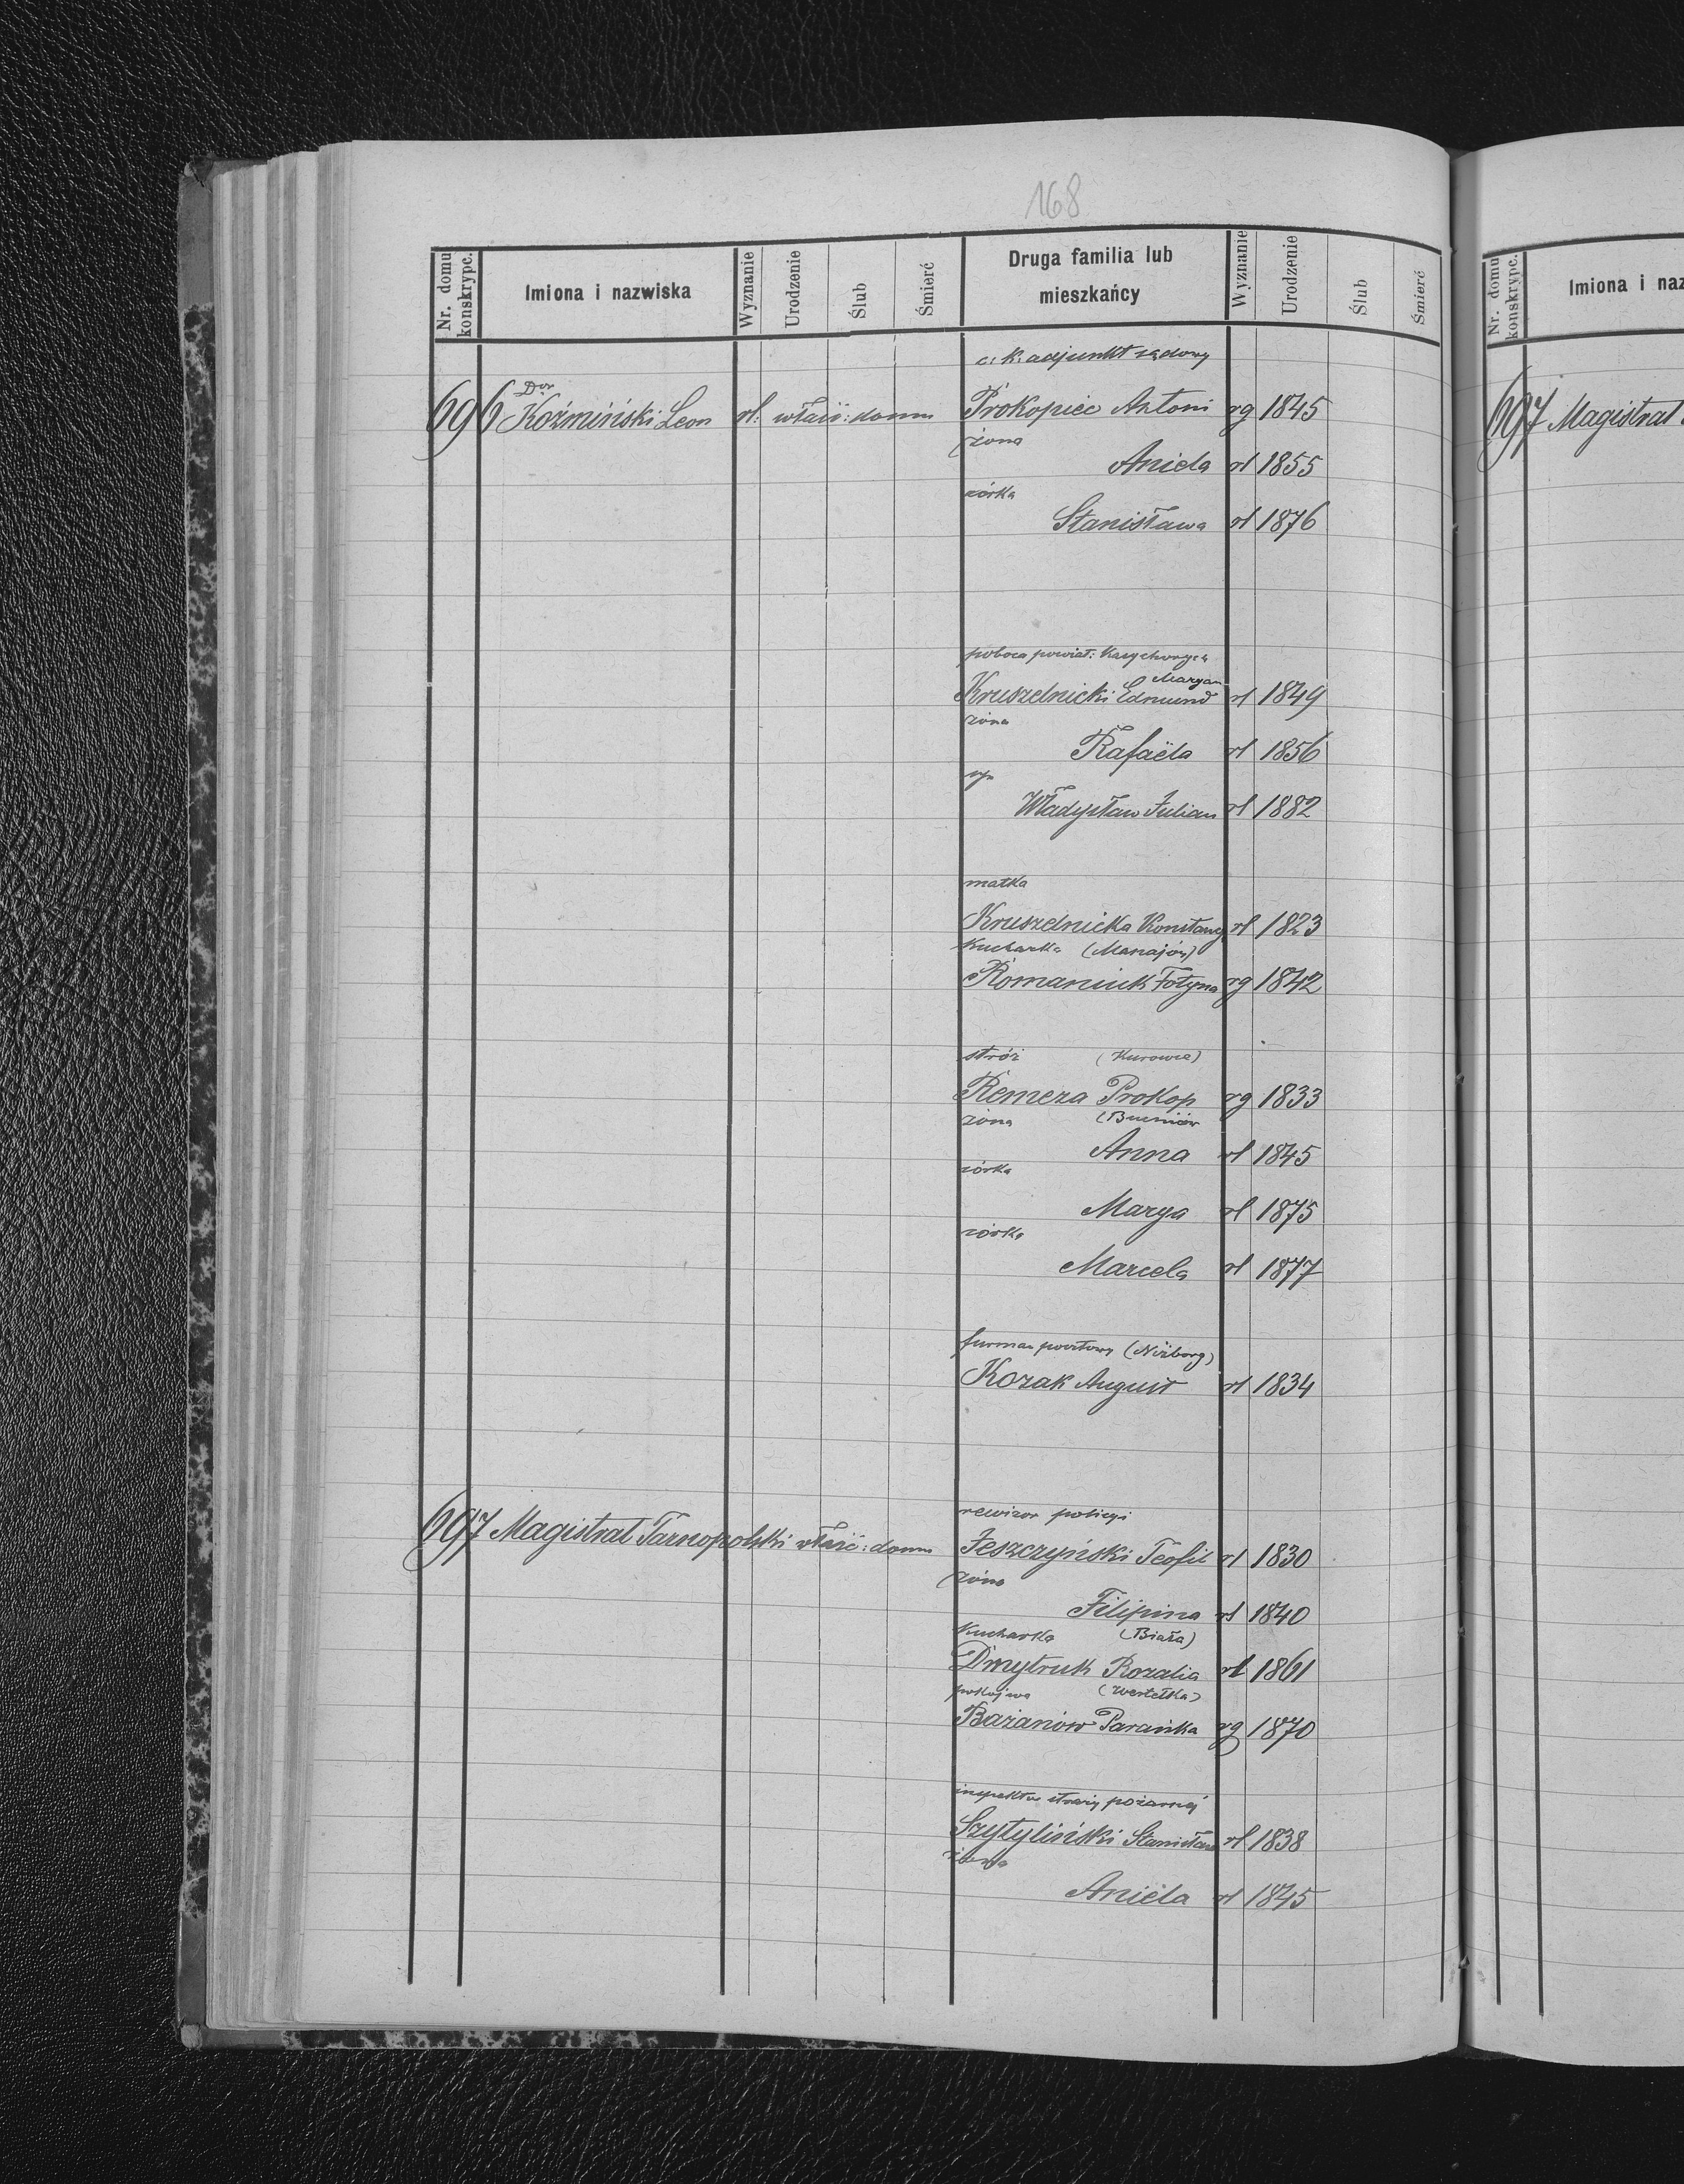 168
Nr. domu konskrypc.
Imiona i nazwiska
Wyznanie
Urodzenie
Ślub
Śmierć
Druga familia lub mieszkańcy
Wyznanie
Urodzenie
Ślub
Śmierć
c: k: adjunkt sądowy
Dor
696 Koźmiński Leon rł: właś: domu Prokopiec Antoni rg 1845
żona
Aniela rł 1855
córka
Stanisława rł 1876
poborca powiat:
Maryan
Kruszelnicki Edmund rł 1849
żona
Rafaela rł 1856
syn
Władysław Julian rł 1882
matka
Kruszelnicka Konstancy rł 1823
Kucharka (Manajów)
Romaniuk Fotyna rg 1842
stróż (Kurowce)
Remeza Prokop rg 1833
żona (Bucniów
Anna rł 1845
córka
Marya rł 1875
córka
Marcela rł 1877
furman pocztowy (Niżborg)
Kozak August rł 1834
rewizor policyi
697 Magistrat Tarnopolski właść: domu Jeszczyński Teofil rł 1830
żona
Filipina rł 1840
Kucharka (Biała)
Dmytruk Rozalia rł 1861
pokojwa (Wertelka)
Bażanów Parańka rg 1870
inspektor straży pożarnej
Szytyliński Stanisław rł 1838
żona
Aniela rł 1845
Nr. domu konskrypc.
Imiona i naz
697 Magistrat